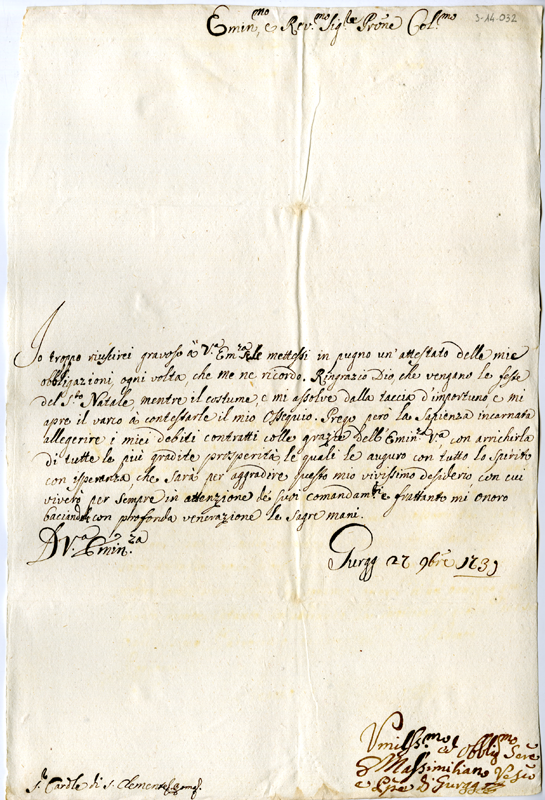 3-14.032
Emin.mo e Rev.mo Sig.re Prōne Col.mo
Io troppo riuscirei gravoso à V.a Em.za se le mettessi in pugno un'attestato delle mie
obbligazioni, ogni volta, che me ne ricordo. Ringrazio Dio, che vengano le feste
del S.to Natale, mentre il costume e mi assolve dalla taccia d'importuno e mi
apre il varco à contestarle il mio Ossequio. Prego però la Sapienza incarnata
allegerire i miei debiti contratti colle grazie dell'Emin.a V.a con arrichirla
di tutte le più gradite prosperità, le quali le auguro con tutto lo spirito
con esperanza che sarà per aggradire questo mio vivissimo desiderio con cui
viverò per sempre in attenzione de suoi comandam.ti e frattanto mi onoro
baciando con profonda venerazione le sagre mani.
D V.a Emin.za
Gurgg 27 9bre 1731
Umiliss.mo ed Obblig.mo Serv.e
Massimiliano Vesco
e Epe di Gurgg
S.r Cardle di S. Clemente